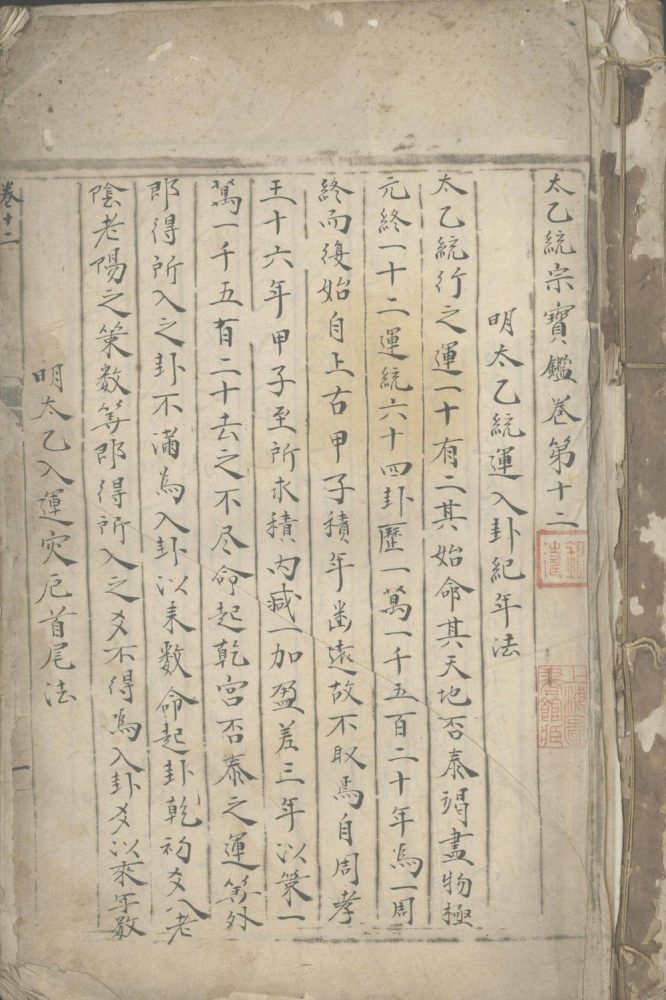 太乙統宗寶鑑卷第十二
明太乙統運入卦紀年法
太乙統行之運一十有二其始命其天地否泰淂盡物極
元終一十二運統六十四卦歷一萬一千五百二十年為一周
終而復始自上古甲子積年幽遠故不取焉自周孝
王十六年甲子至所求積內減一加盈差三年以策一
萬一千五有二十去之不尽命起乾宮否泰之運筭外
即得所入之卦不滿為入卦以来數命起卦乾初爻入老
陰老陽之策数筭即得所入之爻不得為入卦爻以來年數
明太乙入運灾厄首尾法
卷十二
一
上海啚書館蔵